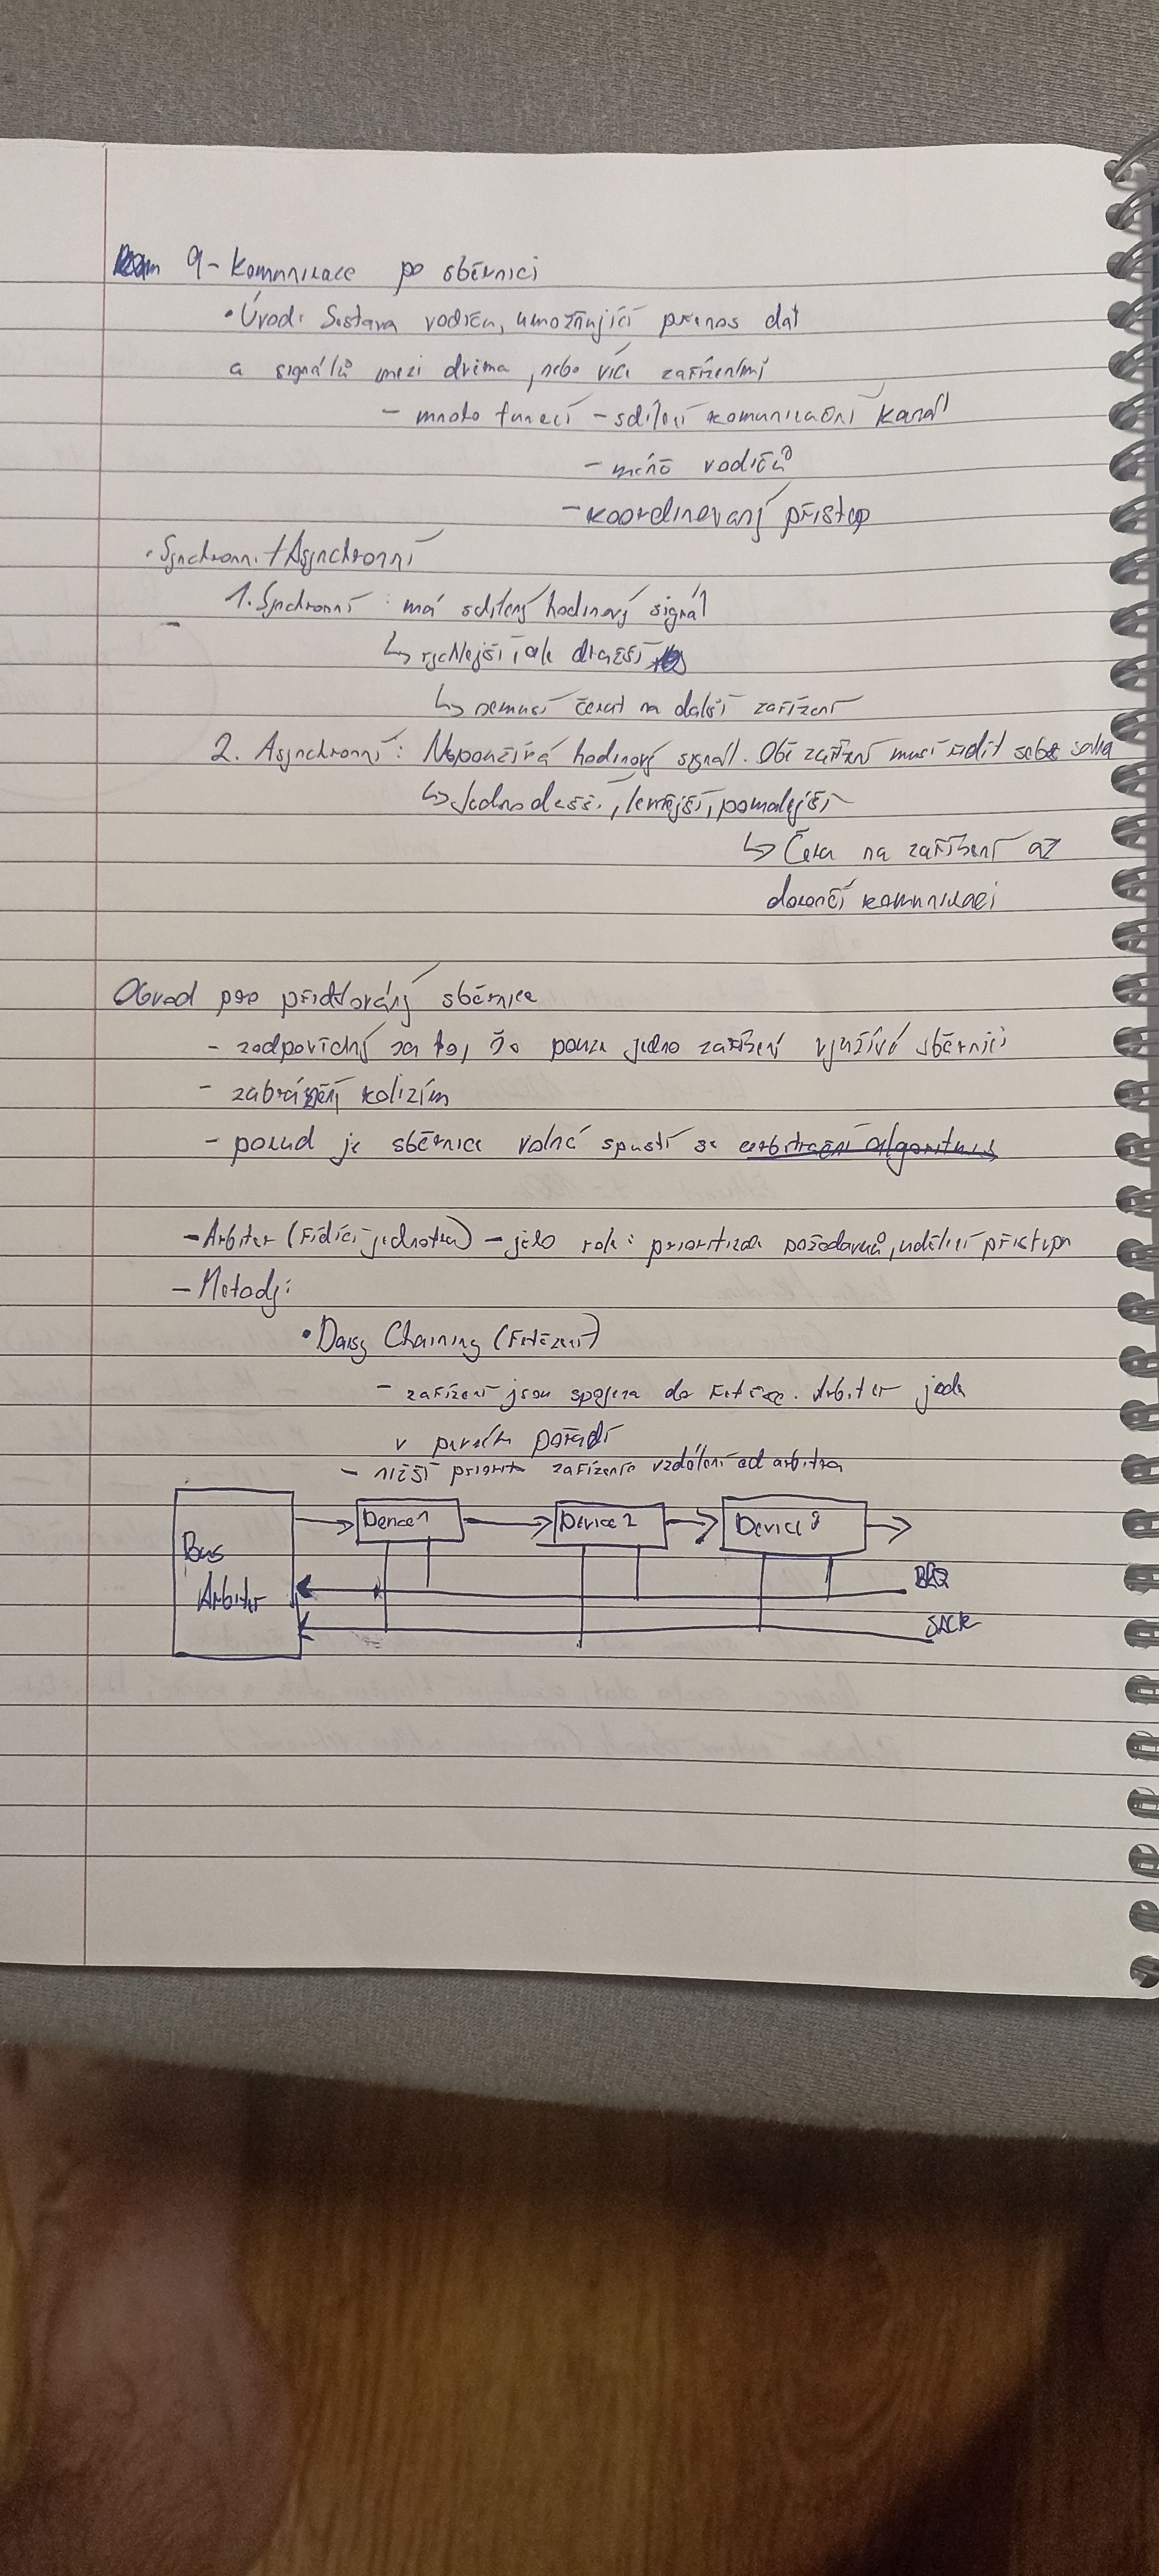 9 - Komunikace po sběrnici
• Úvod: Sestava vodičů, umožňující přenos dat
a signálů mezi dvěma, nebo více zařízeními
- mnoho funkcí - sdílení komunikační kanál
- méně vodičů
- koordinovaný přístup
• Synchronní / Asynchronní
1. Synchronní: má sdílený hodinový signál
↳ rychlejší, ale dražší
↳ nemusí čekat na další zařízení
2. Asynchronní: Nepoužívá hodinový signál. Obě zařízení musí řídit sebe sama
↳ Jednodušší, levnější, pomalejší
↳ Čeká na zařízení až
dokončí komunikaci
Obvod pro přidělování sběrnice
- zodpovědný za to, že pouze jedno zařízení využívá sběrnici
- zabránění kolizím
- pokud je sběrnice volná spustí se arbitrační algoritmus
- Arbiter (řídící jednotka) - jeho role: prioritizace požadavků, udělení přístupu
- Metody:
• Daisy Chaining (Řetězení)
- zařízení jsou spojena do řetězce. Arbiter jede
v pevném pořadí
- nižší priorita zařízení vzdálení od arbitra
Bus
Arbiter
Device 1
Device 2
Device 3
BRQ
SACK